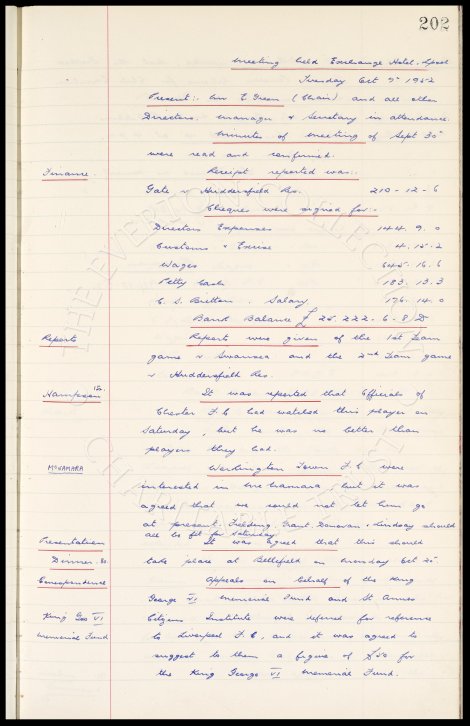 202
Meeting held Exchange Hotel. Lpool
Tuesday Oct 7th 1952
Present:- Mr E Green (Chair) and all other
Directors. Manager & Secretary in attendance.
Minutes of meeting of Sept 30th
were read and confirmed.
Finance.
Receipt reported was:-
Gate v Huddersfield Res. 210-12-6
Cheques were signed for:-
Directors Expenses 144. 9. 0
Customs & Excise 4. 15. 2
Wages 645. 16. 6
Petty Cash 183. 13. 3
C. S. Britton. Salary 176. 14. 0
Bank Balance £ 25. 222 - 6 - 8 D
Reports
Reports were given of the 1st Team
game v Swansea and the 2nd Team game
v Huddersfield Res.
Hampson
It was reported that Officials of
Chester F.C had watched this player on
Saturday, but he was no better than
players they had.
McNAMARA
Workington Town F.C. were
interested in McNamara, but it was
agreed that we could not let him go
at present. Fielding, Grant, Donovan & Lindsay should
all be fit for Saturday.
Presentation
Dinner.
It was agreed that this should
take place at Bellefield on Monday Oct
Correspondence
Appeals on behalf of the King
King Geo VI
Memorial Fund
George VI Memorial Fund and St Annes
Citizens Institute were deferred for reference
to Liverpool F.C. and it was agreed to
suggest to them a figure of £50 for
the King George VI Memorial Fund.
THE EVERTON COLLECTION
CHARITABLE TRUST